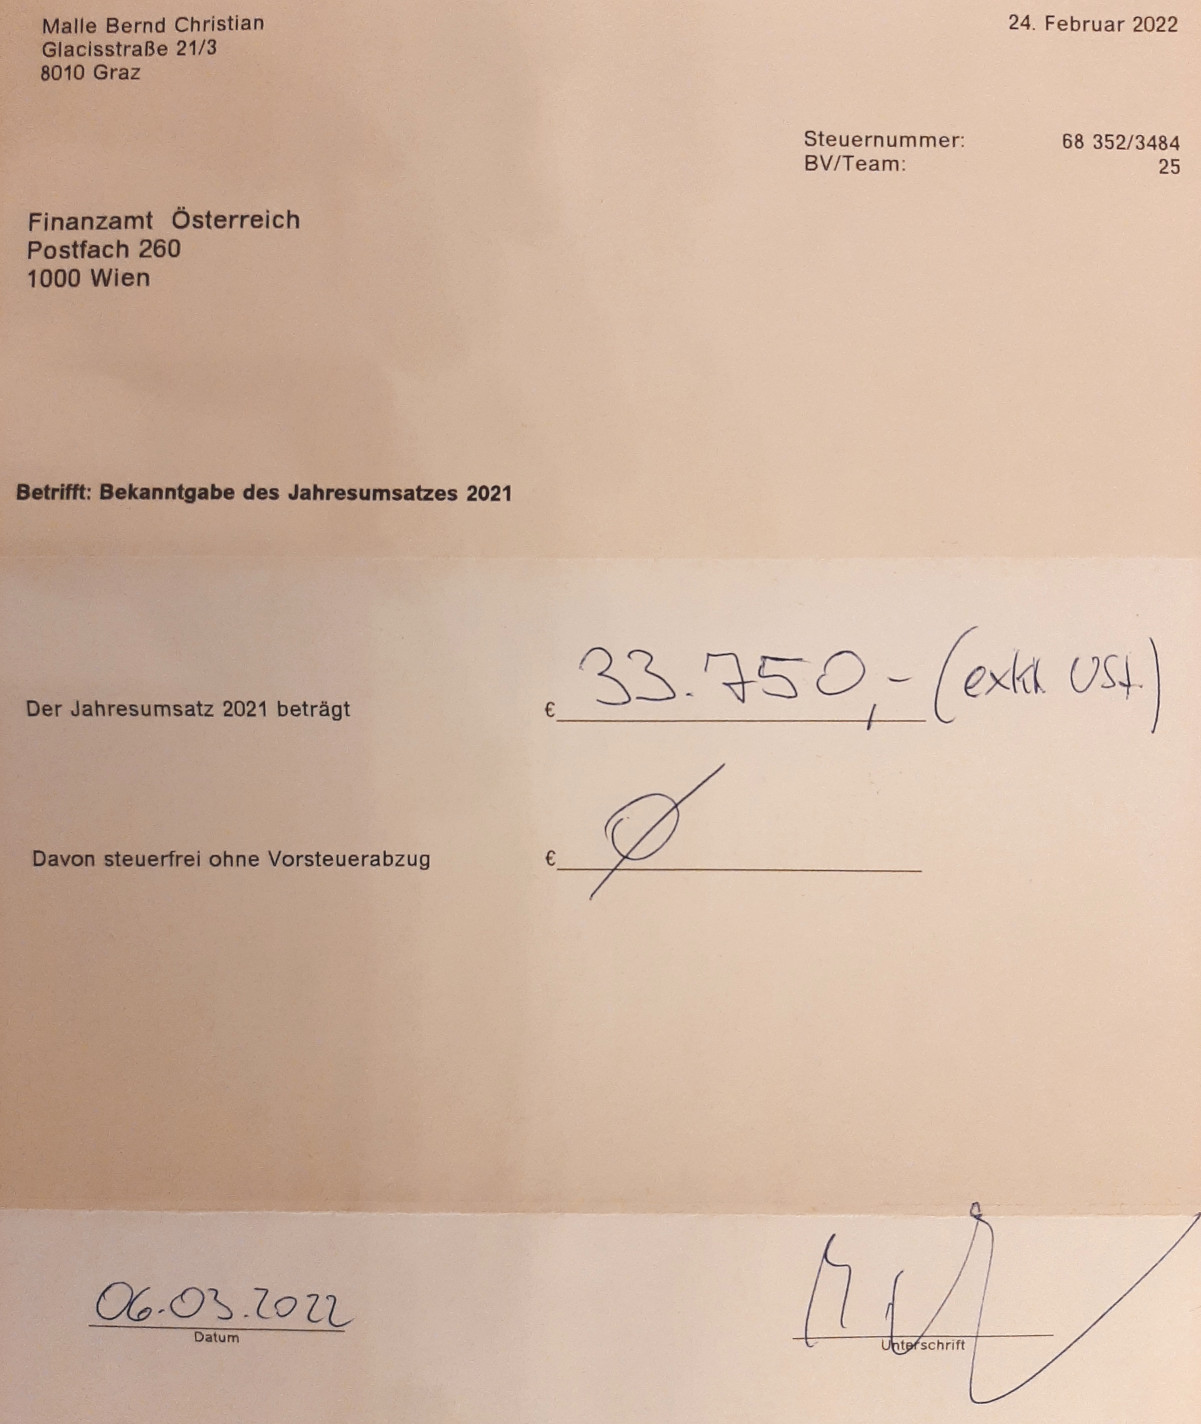 Malle Bernd Christian
24. Februar 2022
Glacisstraße 21/3
8010 Graz
Steuernummer: 68 352/3484
BV/Team: 25
Finanzamt Österreich
Postfach 260
1000 Wien
Betrifft: Bekanntgabe des Jahresumsatzes 2021
Der Jahresumsatz 2021 beträgt € 33.750,- (exkl. USt.)
Davon steuerfrei ohne Vorsteuerabzug € Ø
06.03.2022
Datum
Unterschrift